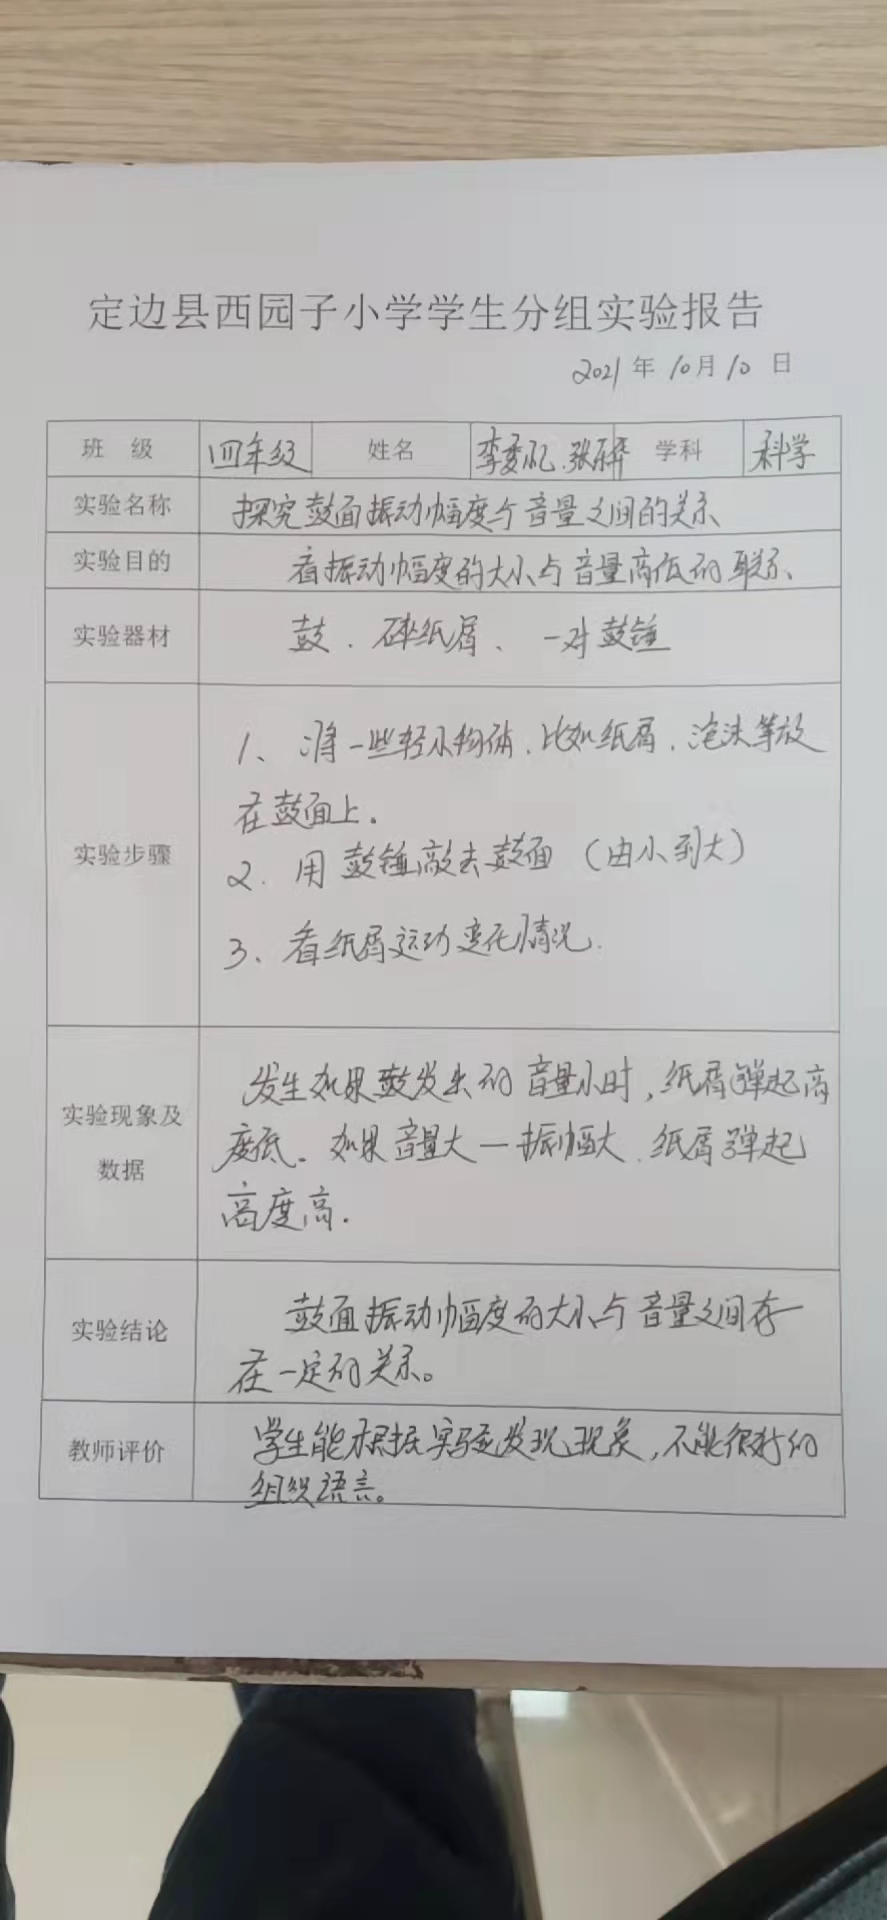 定边县西园子小学学生分组实验报告
2021年10月10日
班 级 四年级 姓名 李 张 学科 科学
实验名称 探究鼓面振动幅度与音量之间的关系
实验目的 看振动幅度的大小与音量高低的联系、
实验器材 鼓、碎纸屑、一对鼓锤
1、将一些轻小物体、比如纸屑、泡沫等放
在鼓面上。
实验步骤
2. 用鼓锤敲击鼓面（由小到大）
3、看纸屑运动变化情况.
发生如果鼓发出的音量小时，纸屑弹起高
实验现象及
度低。如果音量大一振幅大、纸屑弹起
数据
高度高.
鼓面振动幅度的大小与音量之间存
实验结论
在一定的关系。
教师评价 学生能根据实验发现现象，不能很好的
组织语言。